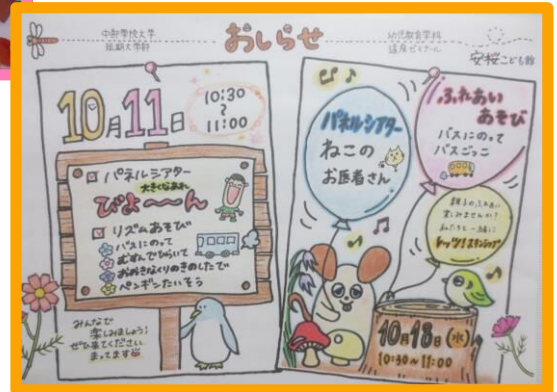 おしらせ
中部学院大学
短期大学部
幼児教育学科
安桜こども館
10月11日
10:30
～
11:00
パネルシアター
大きくなあれ
びよ～～ん
リズムあそび
バスにのって
むすんでひらいて
おおきなくりのきのしたで
ペンギンたいそう
みんなで
楽しみましょう!
ぜひ来てください
まってます
パネルシアター
ねこの
お医者さん
ふれあい
あそび
バスにのって
バスごっこ
親子のふれあい
楽しみませんか?
私たちと一緒に
レッツ!スキンシップ
10月18日(水)
10:30～11:00